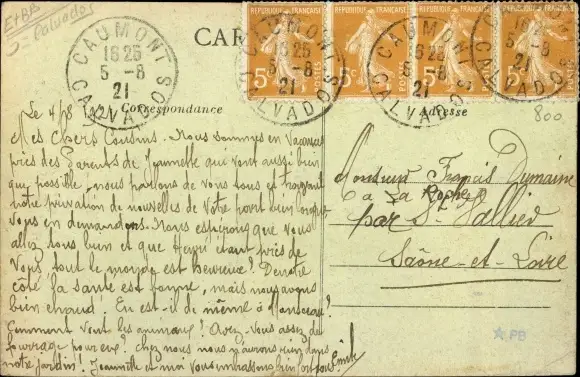 E+BB
Calvados
CAUMONT
16 25
5 - 8
21
CALVADOS
CAR
REPUBLIQUE FRANÇAISE
5c
POSTES
800
Correspondance
Adresse
Le 4/8 1921
Mes Chers Cousins. Nous sommes en Vacances
près des Parents de Jeannette qui vont aussi bien
que possible, nous parlons de vous tous et trouvant
notre privation de nouvelles de votre part bien
vous en demandons. Nous espérons que vous
allez tous bien et que Henri étant près de
Vous tout le monde est heureux? De notre
côté la santé est bonne, mais nous avons
bien chaud. En est-il de même à Monsceau?
Comment vont les animaux? Avez-vous assez de
fourrage pour eux? chez nous nous n'aurons rien dans
notre jardin! Jeannette et moi vous embrassons bien fort tous Emile
Monsieur Francis Dumaine
à La Roche
par St Vallier
Saône-et-Loire
PB